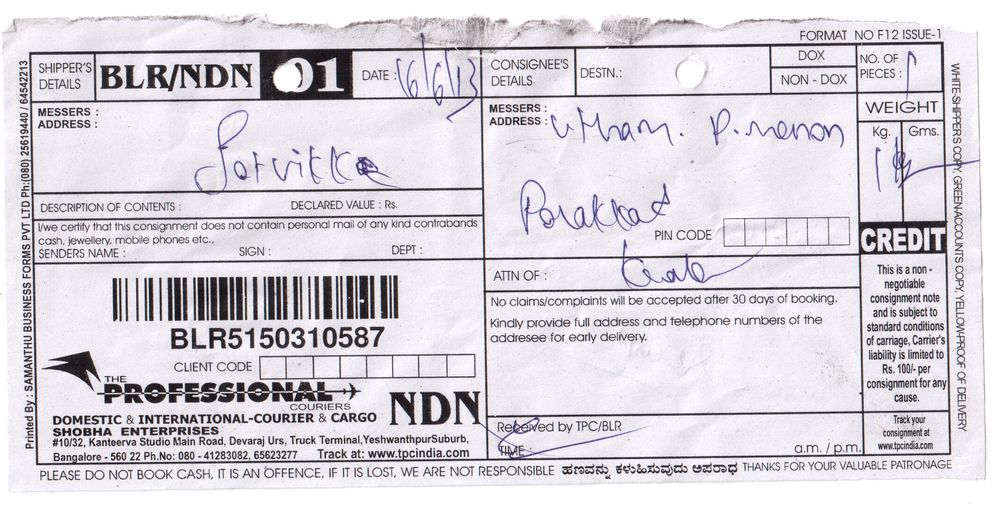 FORMAT NO F12 ISSUE-1
SHIPPER'S DETAILS
BLR/NDN 01
DATE : 16/6/13
CONSIGNEE'S DETAILS
DESTN.:
DOX
NON - DOX
NO. OF PIECES : 1
MESSERS :
ADDRESS :
MESSERS :
ADDRESS :
P. menon
WEIGHT
Kg. Gms.
DESCRIPTION OF CONTENTS : DECLARED VALUE : Rs.
I/we certify that this consignment does not contain personal mail of any kind contrabands
cash, jewellery, mobile phones etc.,
SENDERS NAME : SIGN : DEPT :
PIN CODE
CREDIT
ATTN OF :
BLR5150310587
CLIENT CODE
THE
PROFESSIONAL
COURIERS
NDN
DOMESTIC & INTERNATIONAL-COURIER & CARGO
SHOBHA ENTERPRISES
#10/32, Kanteerva Studio Main Road, Devaraj Urs, Truck Terminal,YeshwanthpurSuburb,
Bangalore - 560 22 Ph.No: 080 - 41283082, 65623277 Track at: www.tpcindia.com
No claims/complaints will be accepted after 30 days of booking.
Kindly provide full address and telephone numbers of the
addresee for early delivery.
Received by TPC/BLR
TIME : a.m. / p.m.
This is a non -
negotiable
consignment note
and is subject to
standard conditions
of carriage, Carrier's
liability is limited to
Rs. 100/- per
consignment for any
cause.
Track your
consignment at
www.tpcindia.com
PLEASE DO NOT BOOK CASH, IT IS AN OFFENCE, IF IT IS LOST, WE ARE NOT RESPONSIBLE ಹಣವನ್ನು ಕಳುಹಿಸುವುದು ಅಪರಾಧ THANKS FOR YOUR VALUABLE PATRONAGE
Printed By : SAMANTHU BUSINESS FORMS PVT LTD Ph:(080) 25619440 / 64542213
WHITE-SHIPPER'S COPY, GREEN-ACCOUNTS COPY, YELLOW-PROOF OF DELIVERY